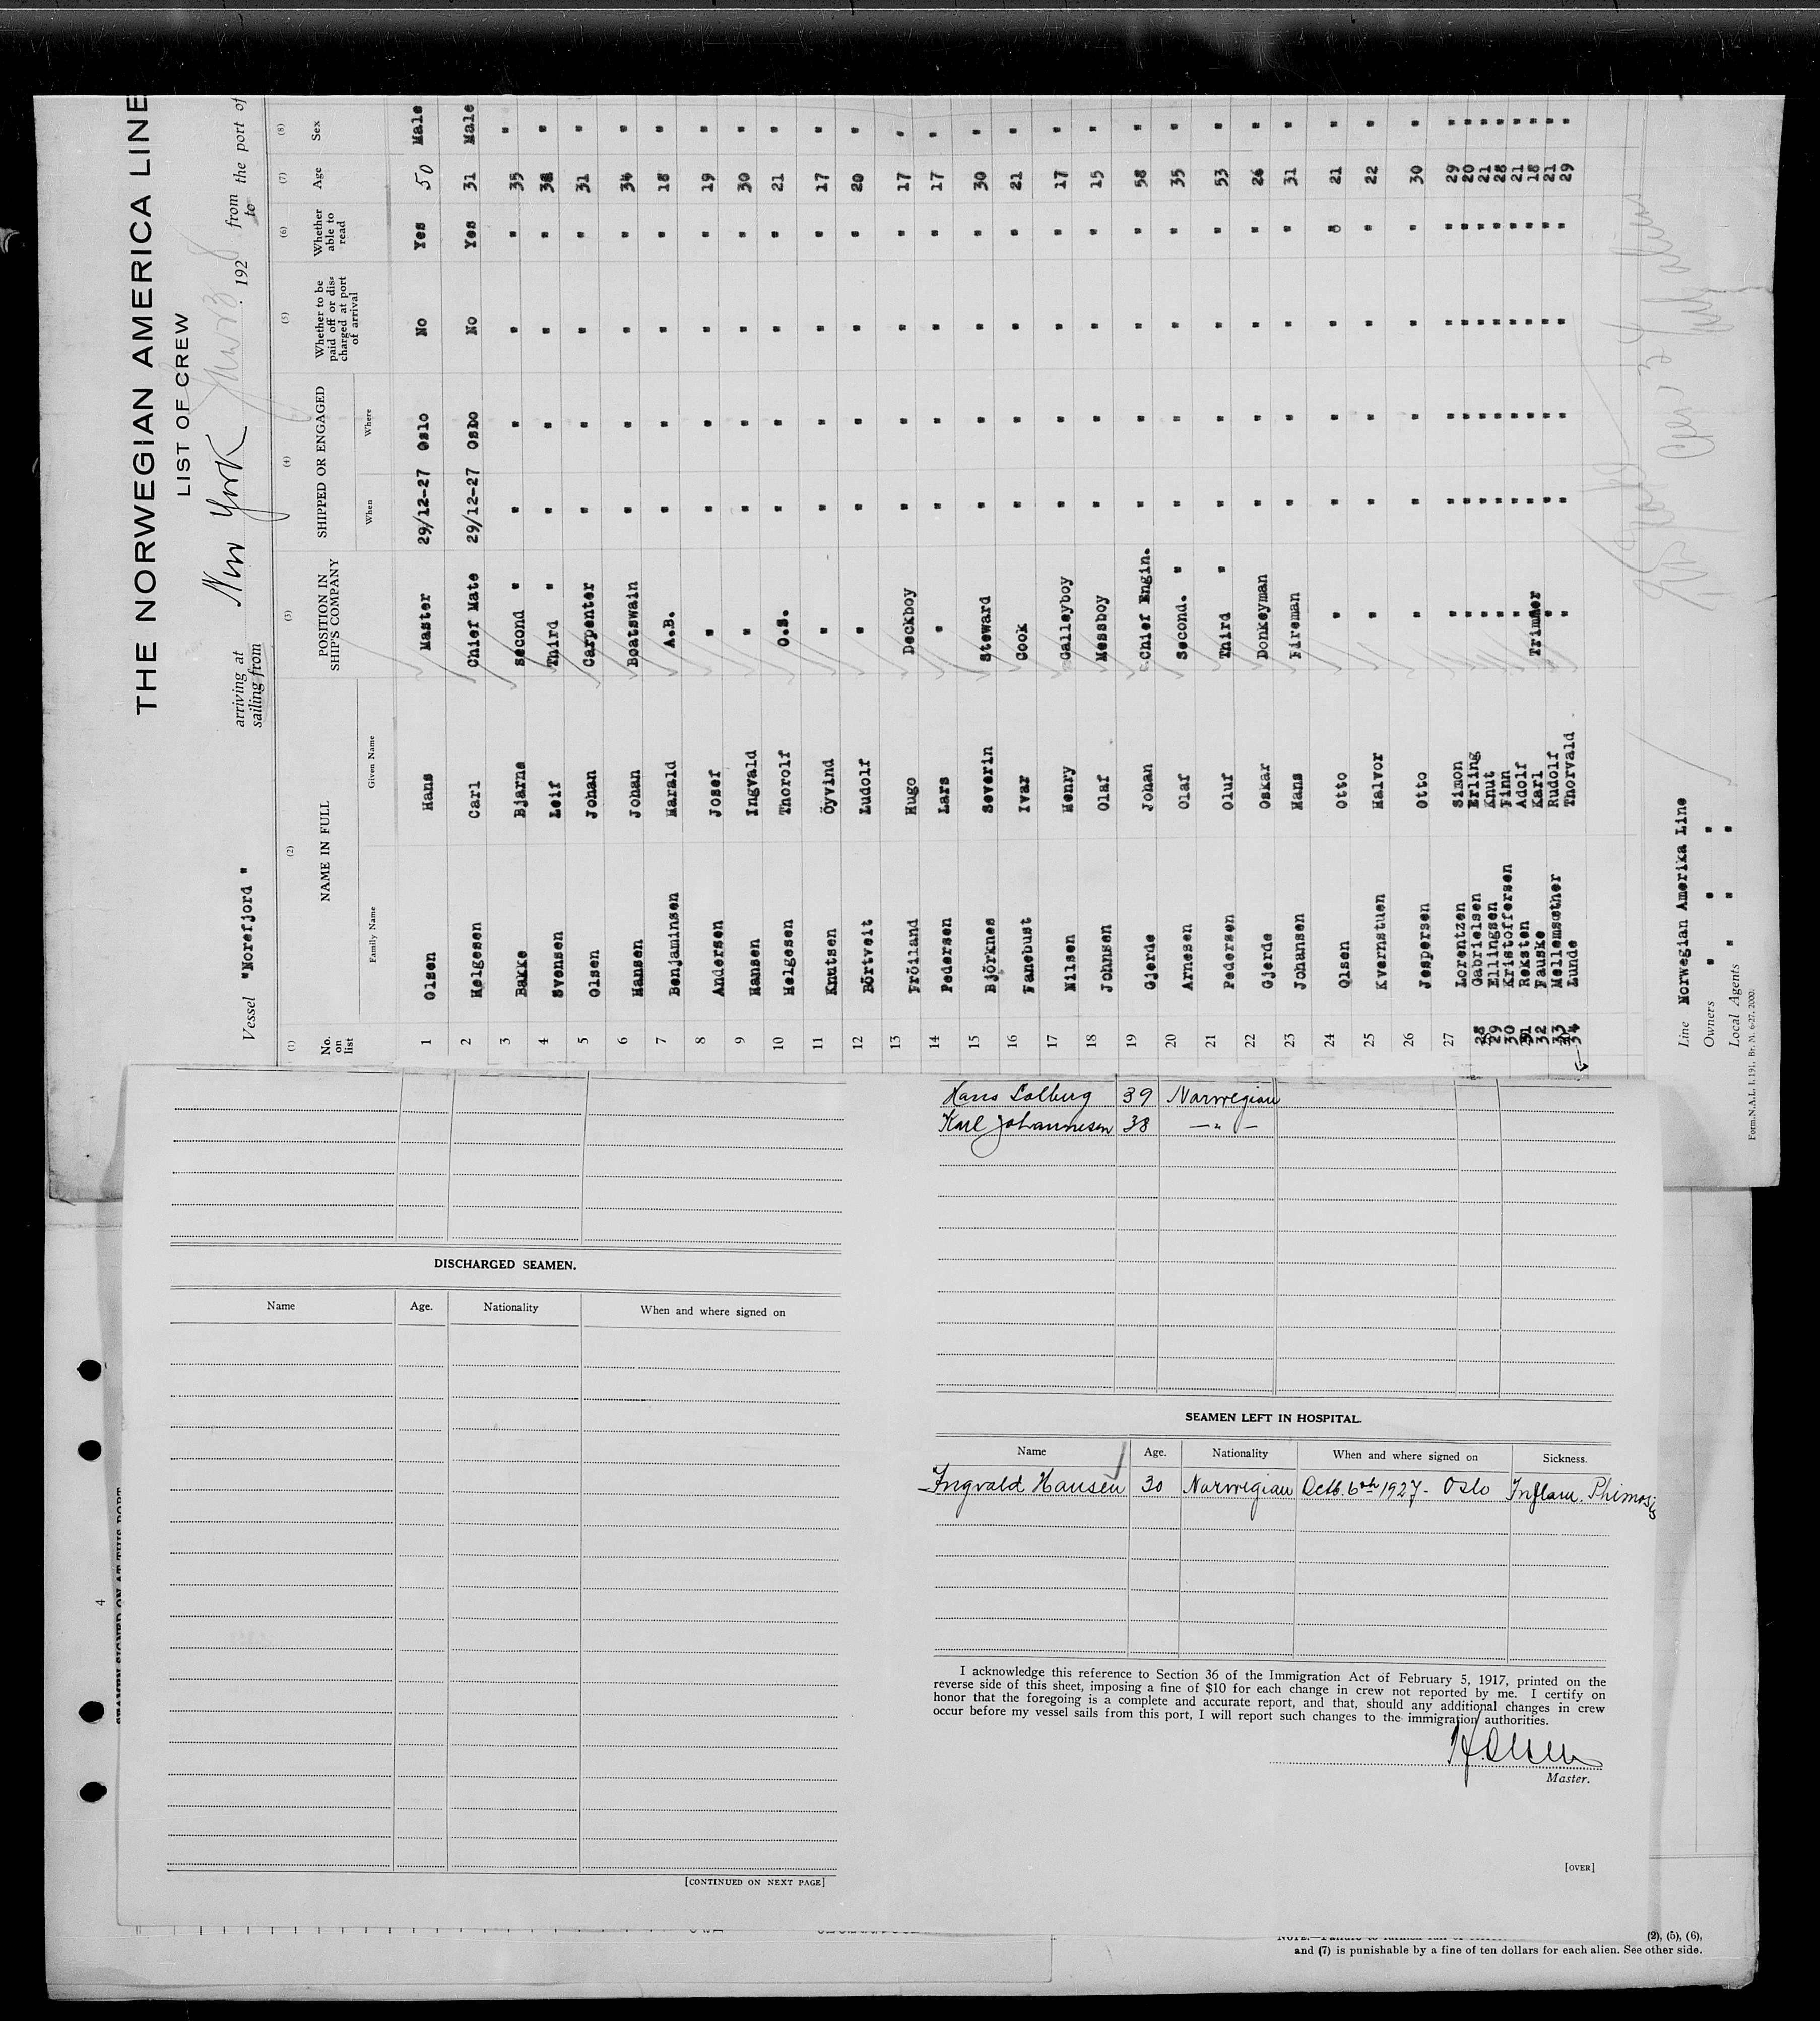 THE NORWEGIAN AMERICA LINE
LIST OF CREW
Vessel "Norefjord" arriving at New York 1928 from the port of
sailing from to
(1) (2) (3) (4) (5) (6) (7) (8)
No. on list NAME IN FULL POSITION IN SHIP'S COMPANY SHIPPED OR ENGAGED Whether to be paid off or dis charged at port of arrival Whether able to read Age Sex
Family Name Given Name When Where
1 Olsen Hans Master 29/12-27 Oslo No Yes 50 Male
2 Helgesen Carl Chief Mate 29/12-27 Oslo No Yes 31 Male
3 Bakke Bjarne Second " " " " " 35 "
4 Svensen Leif Third " " " " " 38 "
5 Olsen Johan Carpenter " " " " 31 "
6 Hansen Johan Boatswain " " " " 34 "
7 Benjaminsen Harald A.B. " " " " 18 "
8 Andersen Josef " " " " " 19 "
9 Hansen Ingvald " " " " " 30 "
10 Helgesen Thorolf O.S. " " " " 21 "
11 Knutsen Öyvind " " " " " 17 "
12 Börtveit Ludolf " " " " " 20 "
13 Fröiland Hugo Deckboy " " " " 17 "
14 Pedersen Lars " " " " " 17 "
15 Björknes Severin Steward " " " " 30 "
16 Fanebust Ivar Cook " " " " 21 "
17 Nilsen Henry Galleyboy " " " " 17 "
18 Johnsen Olaf Messboy " " " " 15 "
19 Gjerde Johan Chief Engin. " " " " 58 "
20 Arnesen Olaf Second. " " " " " 35 "
21 Pedersen Oluf Third " " " " " 53 "
22 Gjerde Oskar Donkeyman " " " " 26 "
23 Johansen Hans Fireman " " " " 31 "
24 Olsen Otto " " " " " 21 "
25 Kvernstuen Halvor " " " " " 22 "
26 Jespersen Otto " " " " " 30 "
27 Lorentzen Simon " " " " " 29 "
28 Gabrielsen Erling " " " " " 20 "
29 Ellingsen Knut " " " " " 21 "
30 Kristoffersen Finn " " " " " 28 "
31 Reksten Adolf " " " " " 21 "
32 Fauske Karl Trimmer " " " " 18 "
33 Mellemsæther Rudolf " " " " " 21 "
34 Lunde Thorvald " " " " " 29 "
Line Norwegian Amerika Line
Owners " " "
Local Agents " " "
Form. N.A.L. I. 191. Br. N. 6/27. 2000.
Hans Solberg 39 Norwegian
Karl Johannesen 38 — " —
DISCHARGED SEAMEN.
Name Age. Nationality When and where signed on
[CONTINUED ON NEXT PAGE]
SEAMEN LEFT IN HOSPITAL.
Name Age. Nationality When and where signed on Sickness.
Ingvald Hansen 30 Norwegian Octb. 6th 1927 - Oslo Inflam. Phimosis
I acknowledge this reference to Section 36 of the Immigration Act of February 5, 1917, printed on the
reverse side of this sheet, imposing a fine of $10 for each change in crew not reported by me. I certify on
honor that the foregoing is a complete and accurate report, and that, should any additional changes in crew
occur before my vessel sails from this port, I will report such changes to the immigration authorities.
H. Olsen
Master.
[OVER]
4
SEAMEN SIGNED ON AT THIS PORT
(2), (5), (6),
and (7) is punishable by a fine of ten dollars for each alien. See other side.